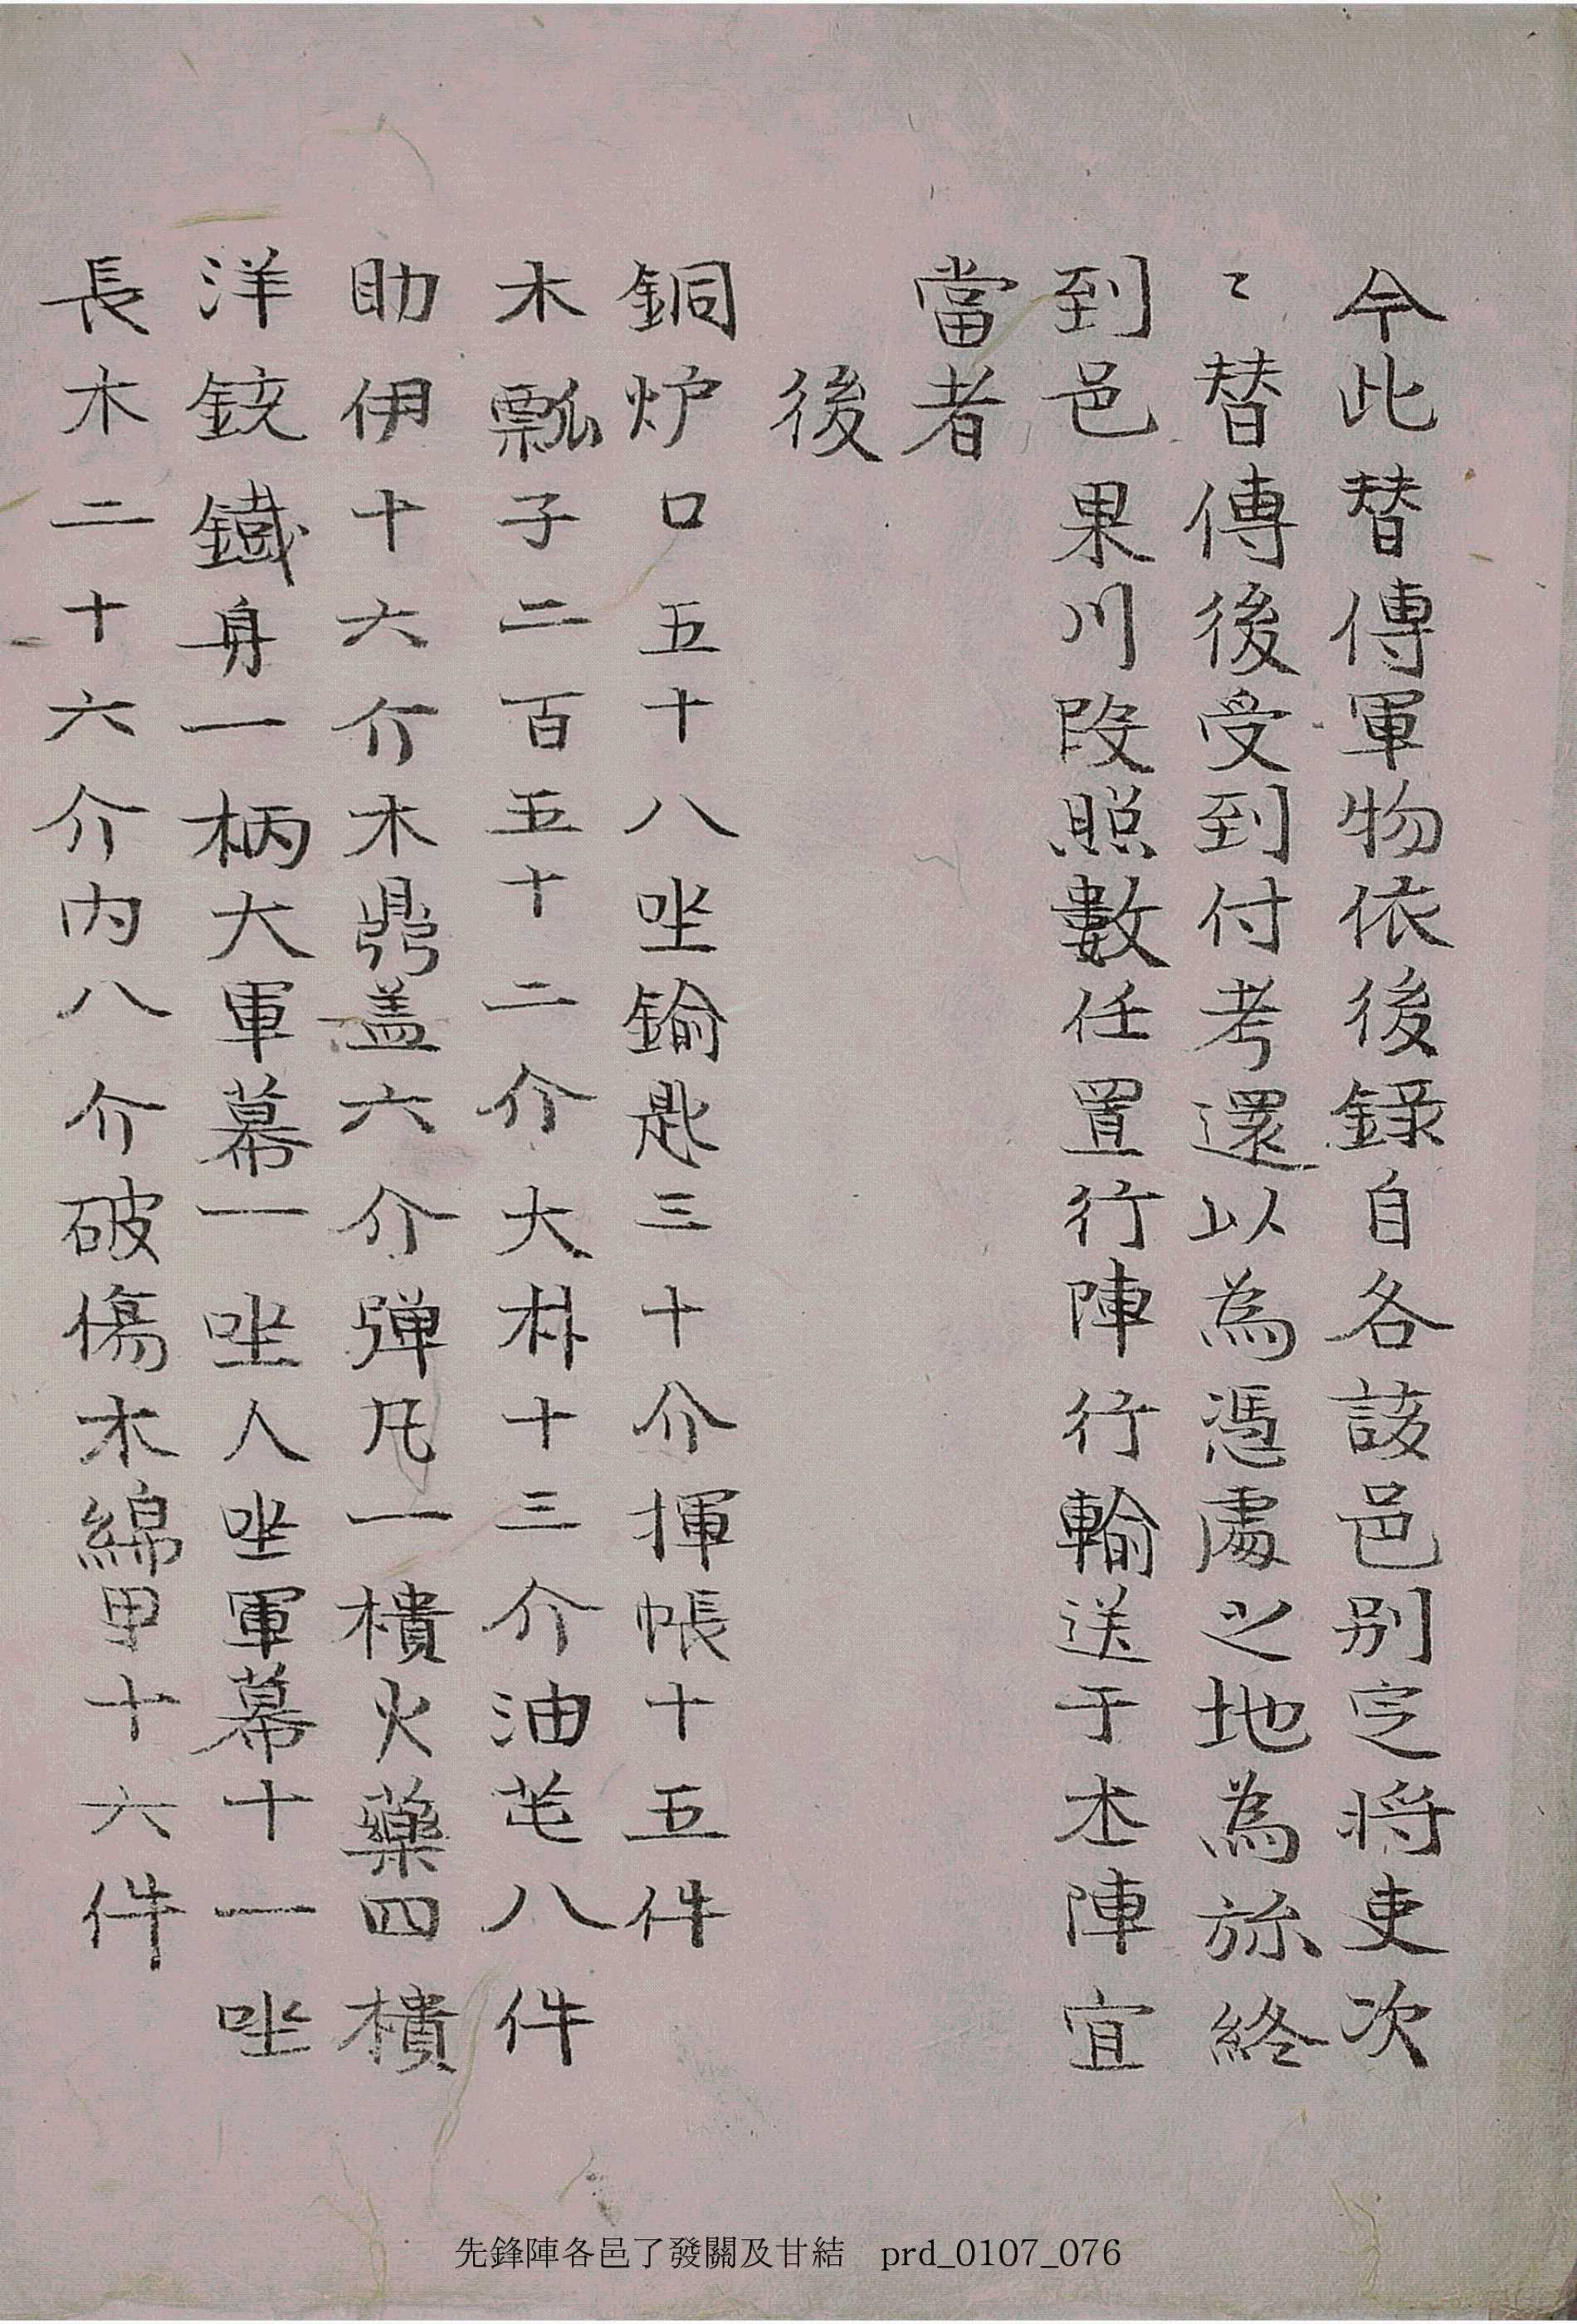 今此替傳軍物依後錄自各該邑别定将吏次
〻替傳後受到付考還以為憑處之地為旀終
到邑果川段照數任置行陣行輸送于本陣宜
當者
後
銅炉口五十八坐鍮匙三十介揮帳十五件
木瓢子二百五十二介大朴十三介油芚八件
助伊十六介木鼎盖六介弾凡一樻火藥四樻
洋銃鐵身一柄大軍幕一坐人坐軍幕十一坐
長木二十六介内八介破傷木綿甲十六件
先鋒陣各邑了發關及甘結 prd_0107_076